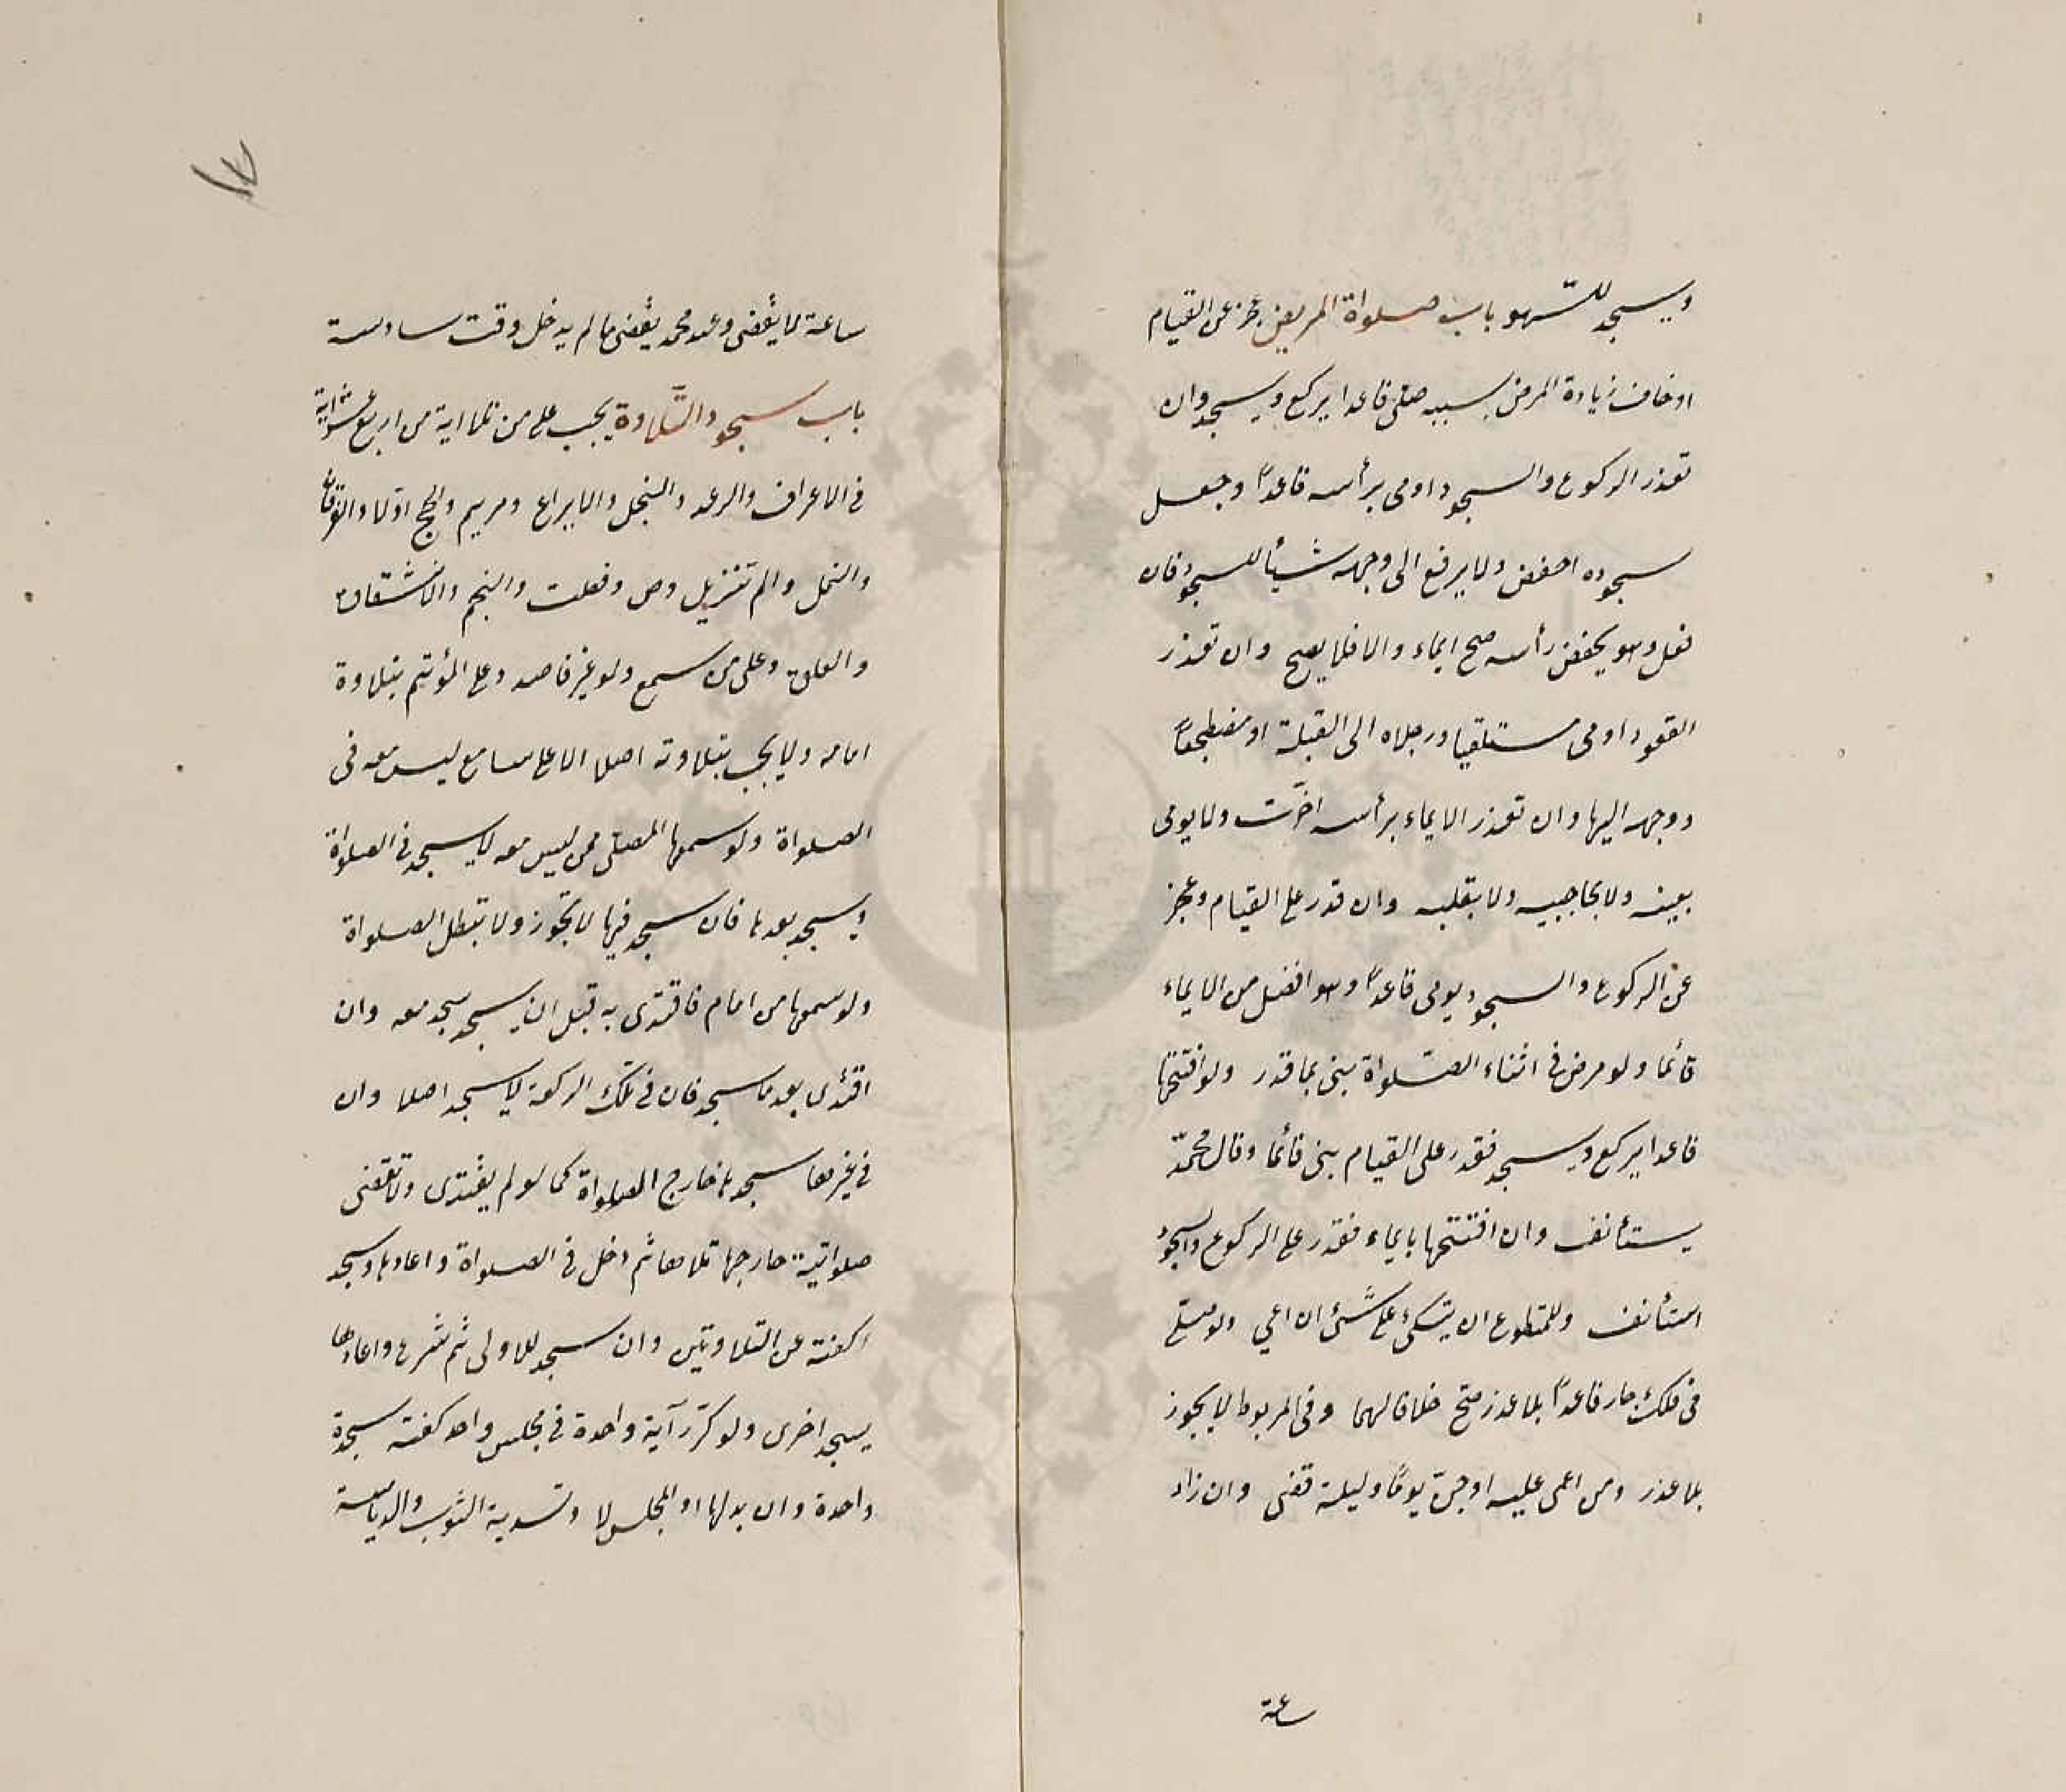 ويسجد للسّهو باب صلواة المريض عجز عن القيام
او خاف زيادة المرض بسببه صلّى قاعدا يركع ويسجد وان
تعذر الركوع والسجود اومى برأسه قاعداً وجعل
سجوده اخفض ولا يرفع الى وجهه شيأ للسجود فان
فعل وهو يخفض رأسه صح ايماء والا فلا يصح وان تعذر
القعود اومى مستلقيا ورجلاه الى القبلة او مضطجعاً
ووجهه اليها وان تعذر الايماء برأسه اخّرت ولا يومى
بعينه ولا بحاجبيه ولا بقلبه وان قدر على القيام وعجز
عن الركوع والسجود يومى قاعداً وهو افضل من الايماء
قائما ولو مرض فى اثناء الصّلواة بنى بما قدر ولو افتتحها
قاعدا يركع ويسجد فقدر على القيام بنى قائما وقال محمّد
يستأنف وان افتتحها بايماء فقدر على الركوع والسجود
استأنف وللمتطوع ان يتكئ على شئ ان اعيي ولو صلى
فى فلك جار قاعداً بلا عذر صحّ خلافا لهما وفى المربوط لا يجوز
بلا عذر ومن اغمى عليه او جنّ يوماً وليلة قضى وان زاد
ساعة
ساعة لا يقضى وعند محمد يقضى ما لم يدخل وقت سادسة
باب سجود التّلاوة يجب على من تلا اية من اربع عشر اية
فى الاعراف والرعد والنحل والاسراء ومريم والحج اوّلا والفرقان
والنمل والم تنزيل وص وفصلت والنجم والانشقاق
والعلق وعلى من سمع ولو غير قاصد وعلى المؤتم بتلاوة
امامه ولا يجب بتلاوته اصلا الا على سامع ليس معه فى
الصلواة ولو سمعها المصلى ممن ليس معه لا يسجد فى الصلواة
ويسجد بعدها فان سجد فيها لا تجوز ولا تبطل الصلواة
ولو سمعها من امام فاقتدى به قبل ان يسجد سجد معه وان
اقتدى بعد ما سجد فان فى تلك الركعة لا يسجد اصلا وان
فى غيرها سجدها خارج الصلواة كما لو لم يقتدى ولا تقضى
صلواتية خارجها تلاها ثم دخل فى الصلواة واعادها وسجد
كفته عن التلاوتين وان سجد للاولى ثم شرع واعادها
يسجد اخرى ولو كرّر آية واحدة فى مجلس واحد كفته سجدة
واحدة وان بدلها او المجلس لا وتسدية الثوب والدياسة